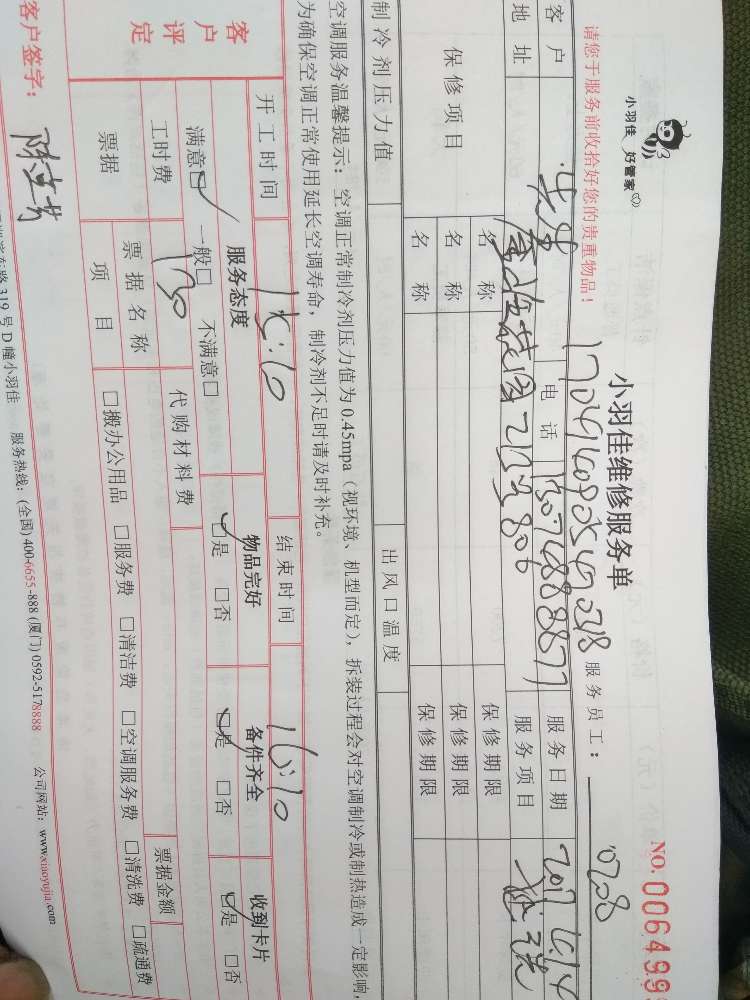 小羽佳 好管家
小羽佳维修服务单
NO. 006499
请您于服务前收拾好您的贵重物品!
服务员工: 0208
客户
电话
服务日期
地址
212号806
服务项目
保修项目
名称
保修期限
名称
保修期限
名称
保修期限
制冷剂压力值
出风口温度
空调服务温馨提示: 空调正常制冷剂压力值为 0.45mpa (视环境、机型而定), 拆装过程会对空调制冷或制热造成一定影响,
为确保空调正常使用延长空调寿命, 制冷剂不足时请及时补充。
开工时间 15:10 结束时间 16:10
客户评定
服务态度 物品完好 备件齐全 收到卡片
满意□ 一般□ 不满意□ □是 □否 □是 □否 □是 □否
工时费 130 代购材料费
票据 票据名称 票据金额
项目 □搬办公用品 □服务费 □清洁费 □空调服务费 □清洗费 □疏通费
客户签字:
东路 319 号 D 幢小羽佳 服务热线: (全国) 400-6655-888 (厦门) 0592-5178888 公司网站: www.xiaoyujia.com